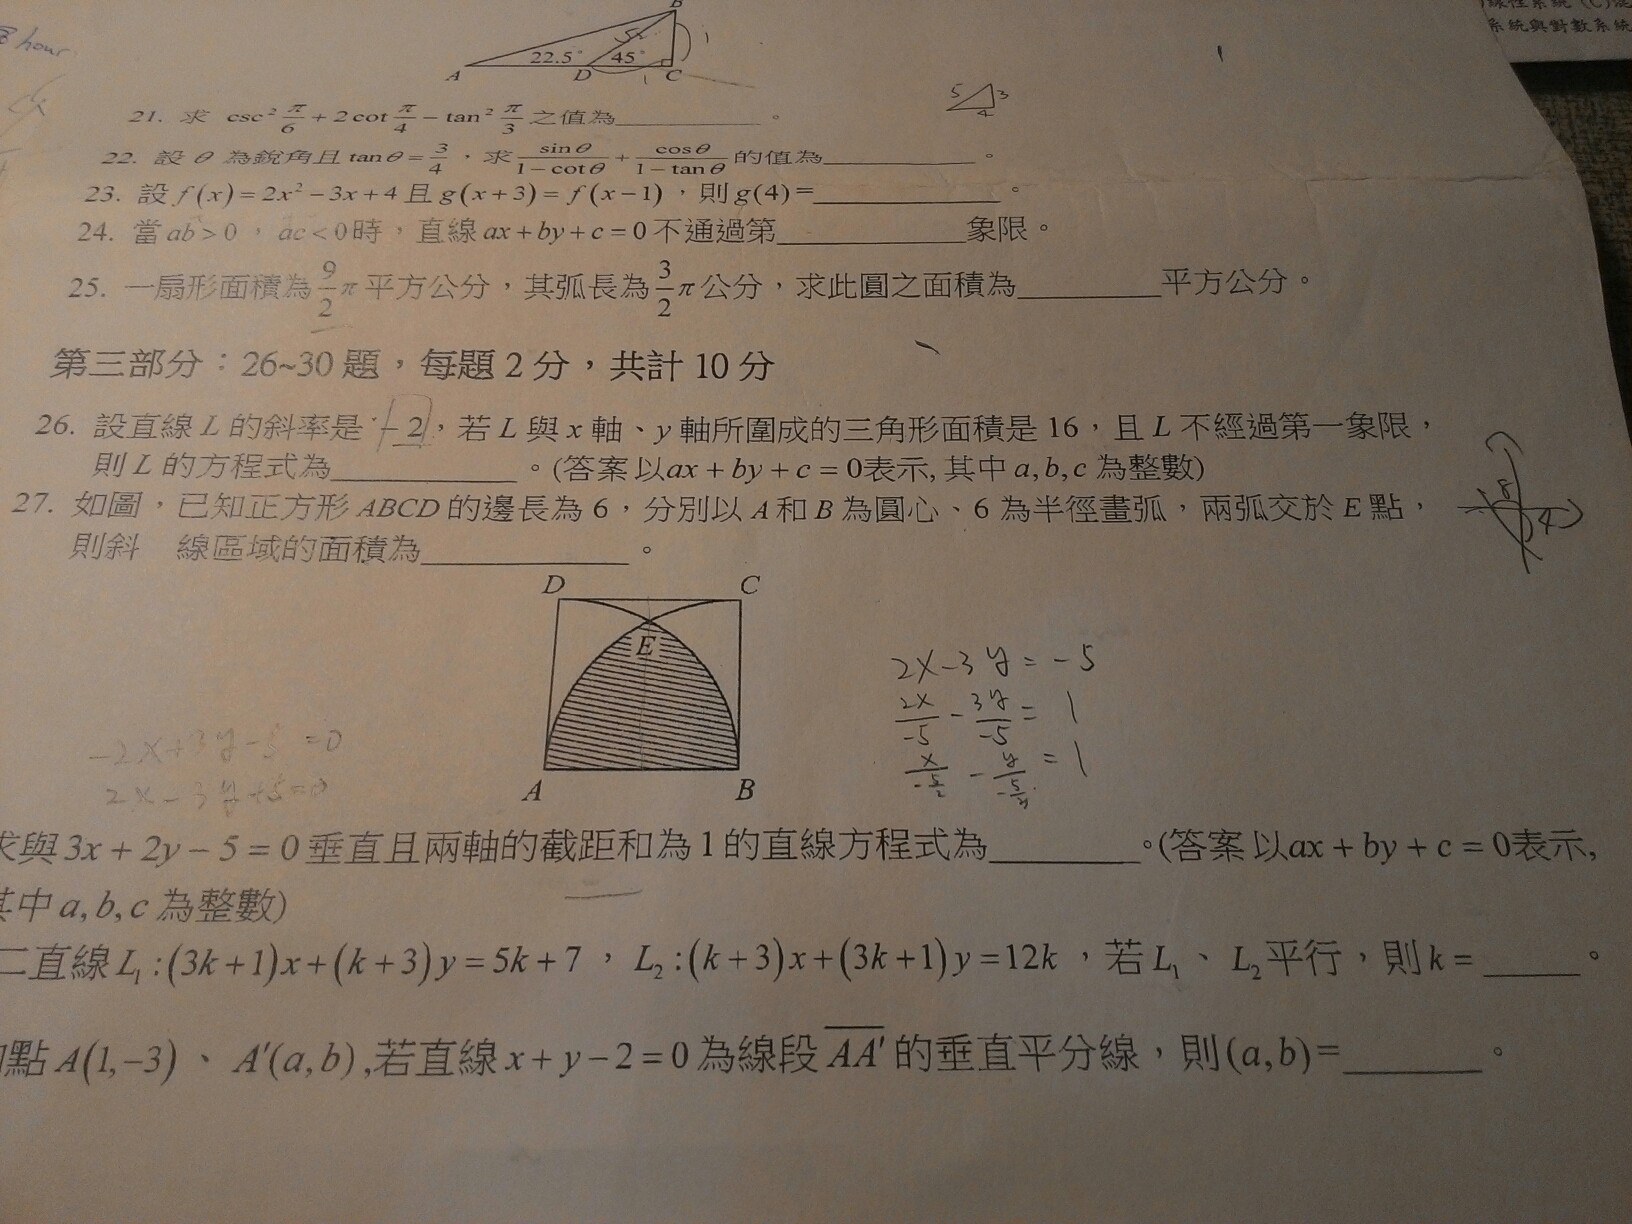 線性系統 (C)
系統與對數系統
hour
B
22.5°
45°
1
A
D
1
C
5
3
4
21. 求 csc² π/6 + 2cot π/4 − tan² π/3 之值為________。
22. 設 θ 為銳角且 tanθ = 3/4，求 sinθ/(1−cotθ) + cosθ/(1−tanθ) 的值為________。
23. 設 f(x) = 2x² − 3x + 4 且 g(x+3) = f(x−1)，則 g(4) = ________。
24. 當 ab > 0，ac < 0 時，直線 ax + by + c = 0 不通過第________象限。
25. 一扇形面積為 9/2 π 平方公分，其弧長為 3/2 π 公分，求此圓之面積為________平方公分。
第三部分：26~30 題，每題 2 分，共計 10 分
26. 設直線 L 的斜率是 −2，若 L 與 x 軸、y 軸所圍成的三角形面積是 16，且 L 不經過第一象限，
則 L 的方程式為________。(答案以ax + by + c = 0表示, 其中 a, b, c 為整數)
8
4
27. 如圖，已知正方形 ABCD 的邊長為 6，分別以 A 和 B 為圓心、6 為半徑畫弧，兩弧交於 E 點，
則斜 線區域的面積為________。
D
C
E
A
B
2x − 3y = −5
2x/−5 − 3y/−5 = 1
−2x + 3y − 5 = 0
2x − 3y + 5 = 0
求與 3x + 2y − 5 = 0 垂直且兩軸的截距和為 1 的直線方程式為________。(答案以ax + by + c = 0表示,
其中 a, b, c 為整數)
二直線 L₁ : (3k+1)x + (k+3)y = 5k + 7，L₂ : (k+3)x + (3k+1)y = 12k，若 L₁、L₂ 平行，則 k = ________。
點 A(1,−3)、A′(a,b) ,若直線 x + y − 2 = 0 為線段 AA′ 的垂直平分線，則 (a,b) = ________。